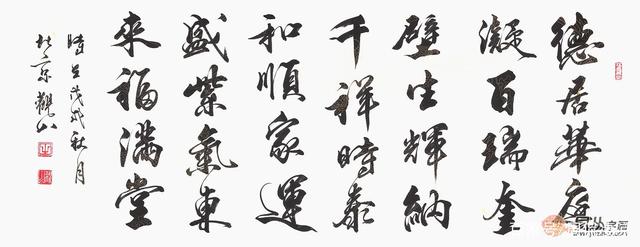 德居華府
凝百瑞奎
壁生輝納
千祥時泰
和順家運
盛紫氣東
來福滿堂
時在戊戌秋月
北京觀山